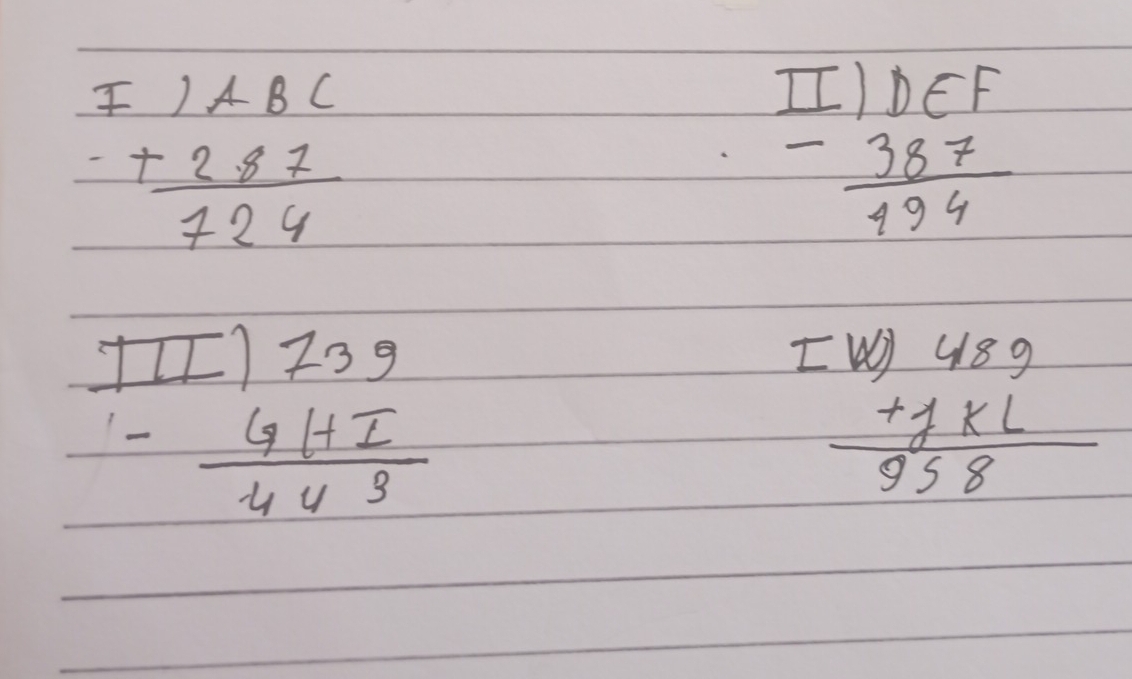 I ) A B C
+ 2 8 7
7 2 4
II ) D E F
- 3 8 7
1 9 4
III ) 7 3 9
- G H I
4 4 3
IV) 4 8 9
+ J K L
9 5 8